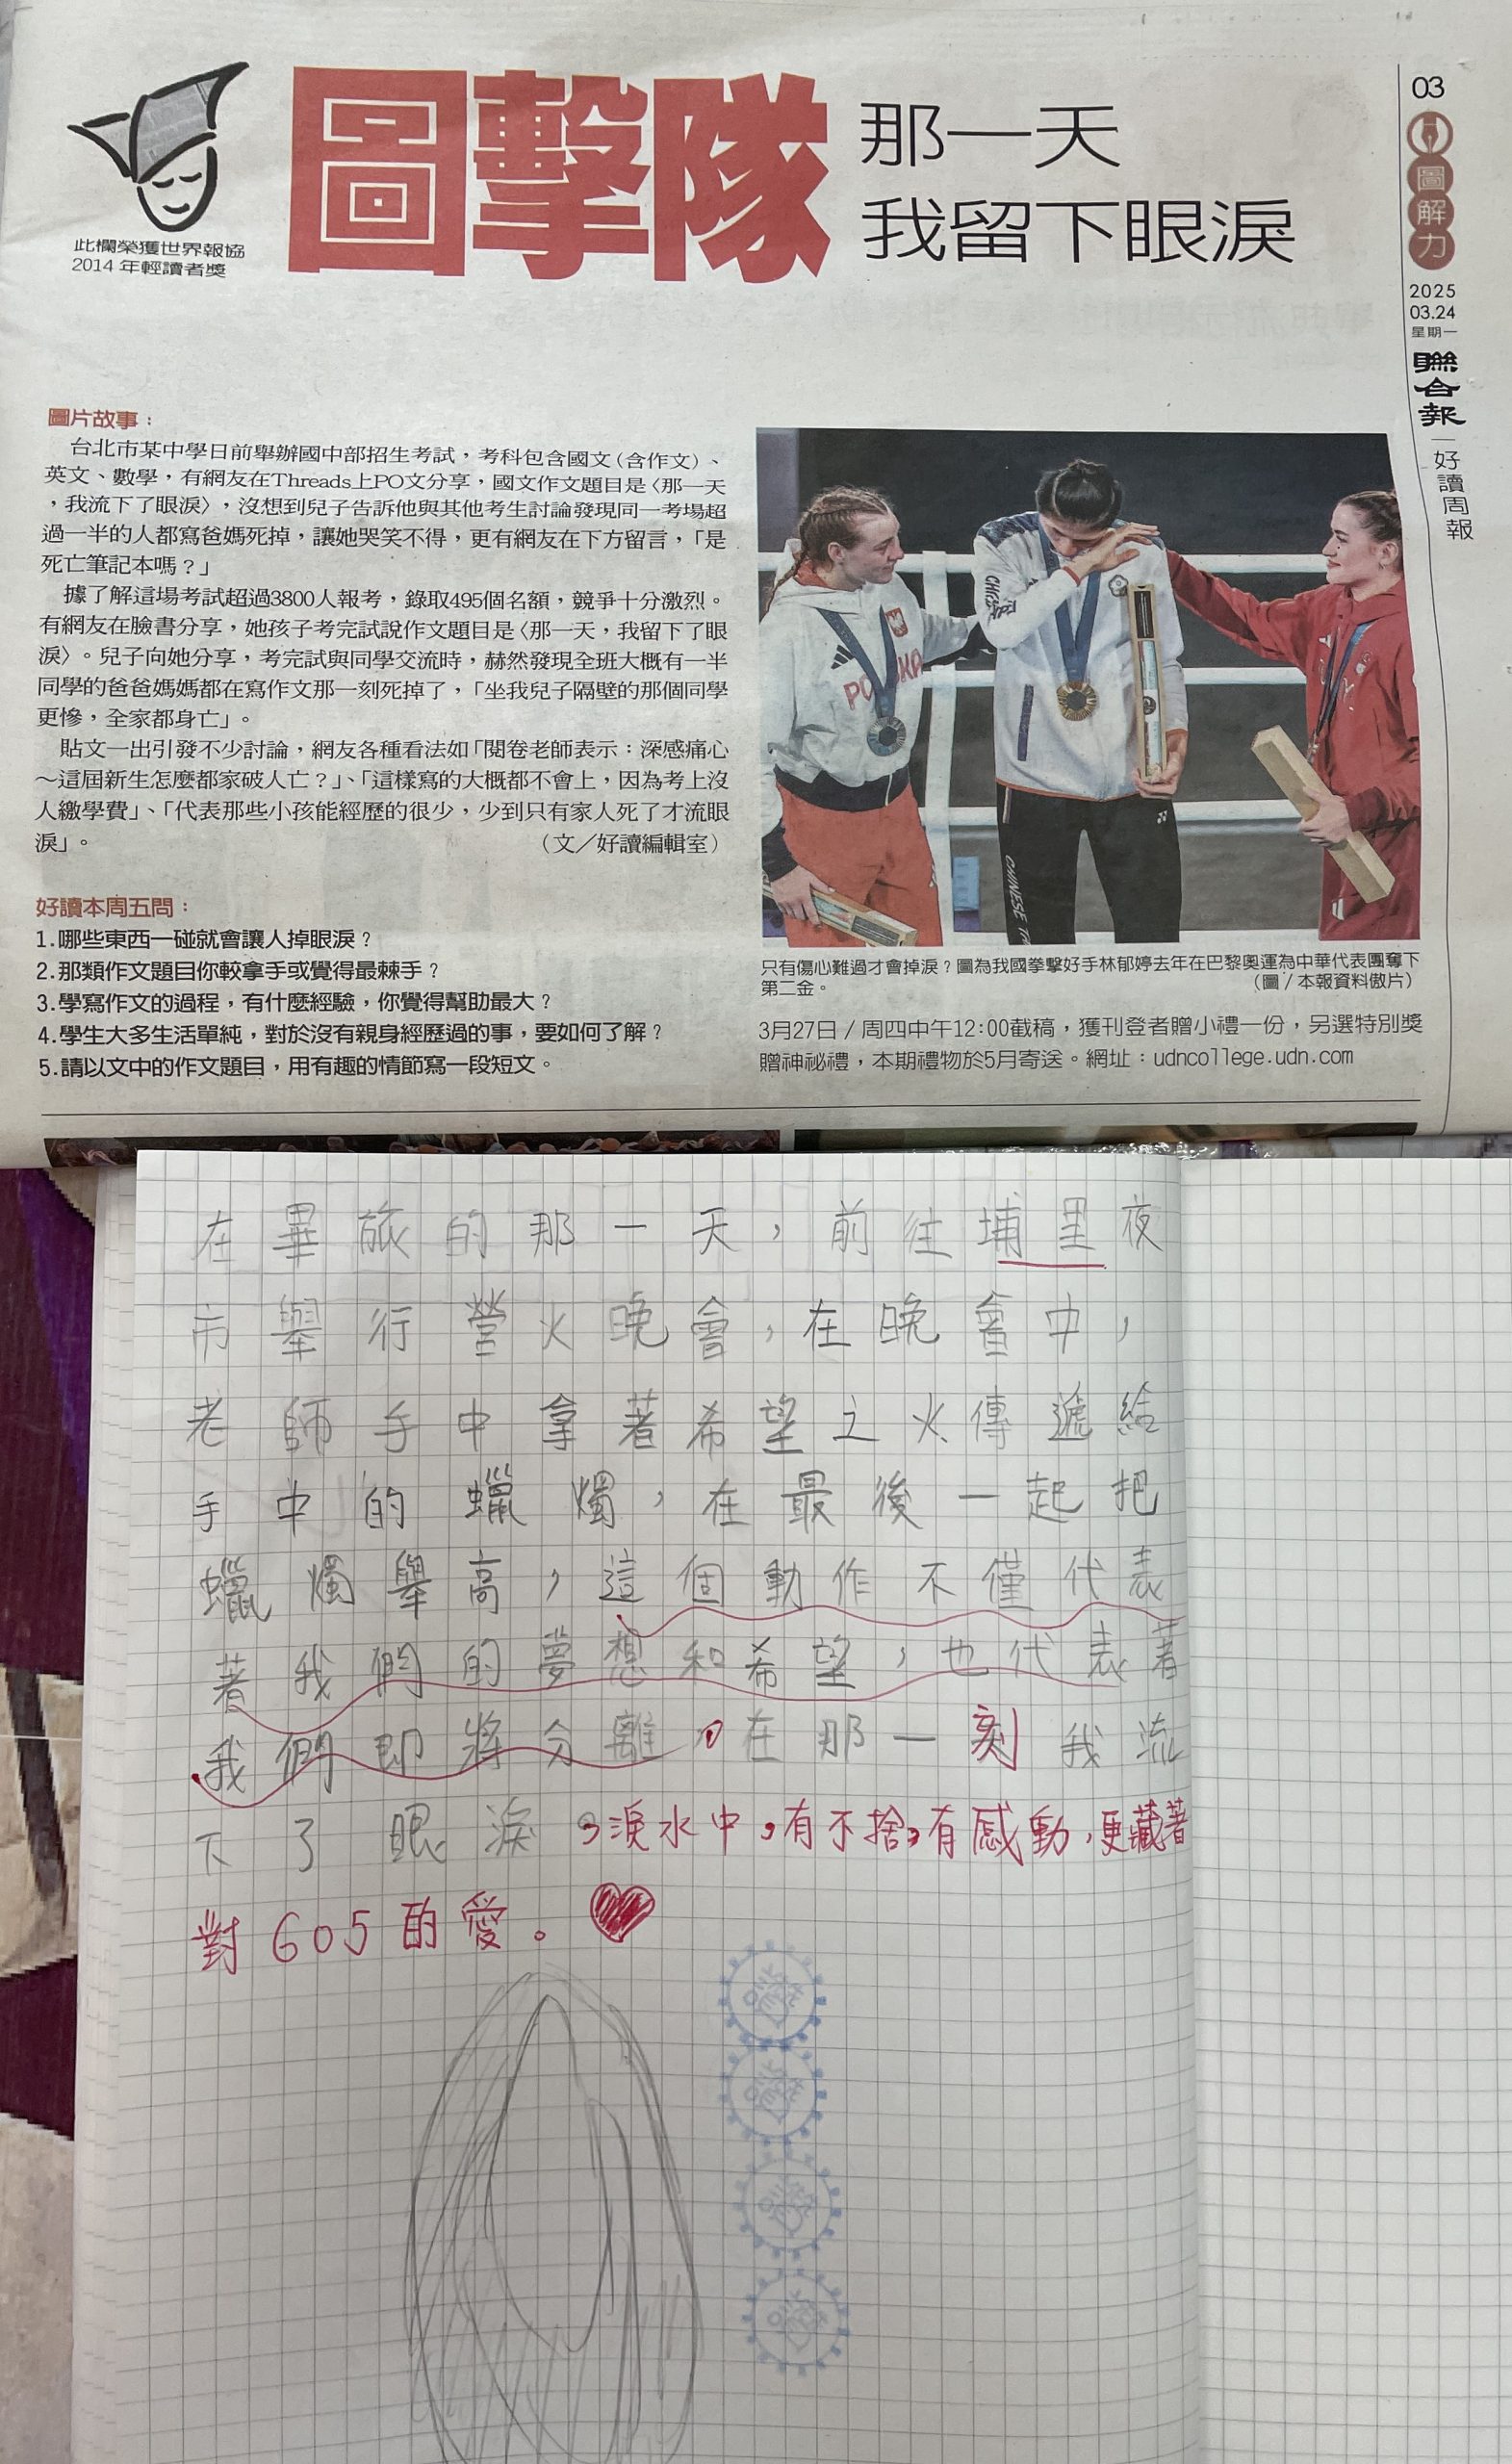 此欄榮獲世界報協
2014 年輕讀者獎
圖擊隊
那一天
我留下眼淚
03
圖解力
2025
03.24
星期一
聯合報
好讀周報
圖片故事：
台北市某中學日前舉辦國中部招生考試，考科包含國文（含作文）、
英文、數學，有網友在Threads上PO文分享，國文作文題目是〈那一天
，我流下了眼淚〉，沒想到兒子告訴他與其他考生討論發現同一考場超
過一半的人都寫爸媽死掉，讓她哭笑不得，更有網友在下方留言，「是
死亡筆記本嗎？」
據了解這場考試超過3800人報考，錄取495個名額，競爭十分激烈。
有網友在臉書分享，她孩子考完試說作文題目是〈那一天，我留下了眼
淚〉。兒子向她分享，考完試與同學交流時，赫然發現全班大概有一半
同學的爸爸媽媽都在寫作文那一刻死掉了，「坐我兒子隔壁的那個同學
更慘，全家都身亡」。
貼文一出引發不少討論，網友各種看法如「閱卷老師表示：深感痛心
～這屆新生怎麼都家破人亡？」、「這樣寫的大概都不會上，因為考上沒
人繳學費」、「代表那些小孩能經歷的很少，少到只有家人死了才流眼
淚」。
（文／好讀編輯室）
好讀本周五問：
1.哪些東西一碰就會讓人掉眼淚？
2.那類作文題目你較拿手或覺得最棘手？
3.學寫作文的過程，有什麼經驗，你覺得幫助最大？
4.學生大多生活單純，對於沒有親身經歷過的事，要如何了解？
5.請以文中的作文題目，用有趣的情節寫一段短文。
POLSKA
CHINESE
只有傷心難過才會掉淚？圖為我國拳擊好手林郁婷去年在巴黎奧運為中華代表團奪下
第二金。
（圖／本報資料傲片）
3月27日／周四中午12:00截稿，獲刊登者贈小禮一份，另選特別獎
贈神祕禮，本期禮物於5月寄送。網址：udncollege.udn.com
在畢旅的那一天，前往埔里夜
市舉行營火晚會，在晚會中，
老師手中拿著希望之火傳遞給
手中的蠟燭，在最後一起把
蠟燭舉高，這個動作不僅代表
著我們的夢想和希望，也代表著
我們即將分離，在那一刻我流
下了眼淚，淚水中，有不捨，有感動，更藏著
對605的愛。